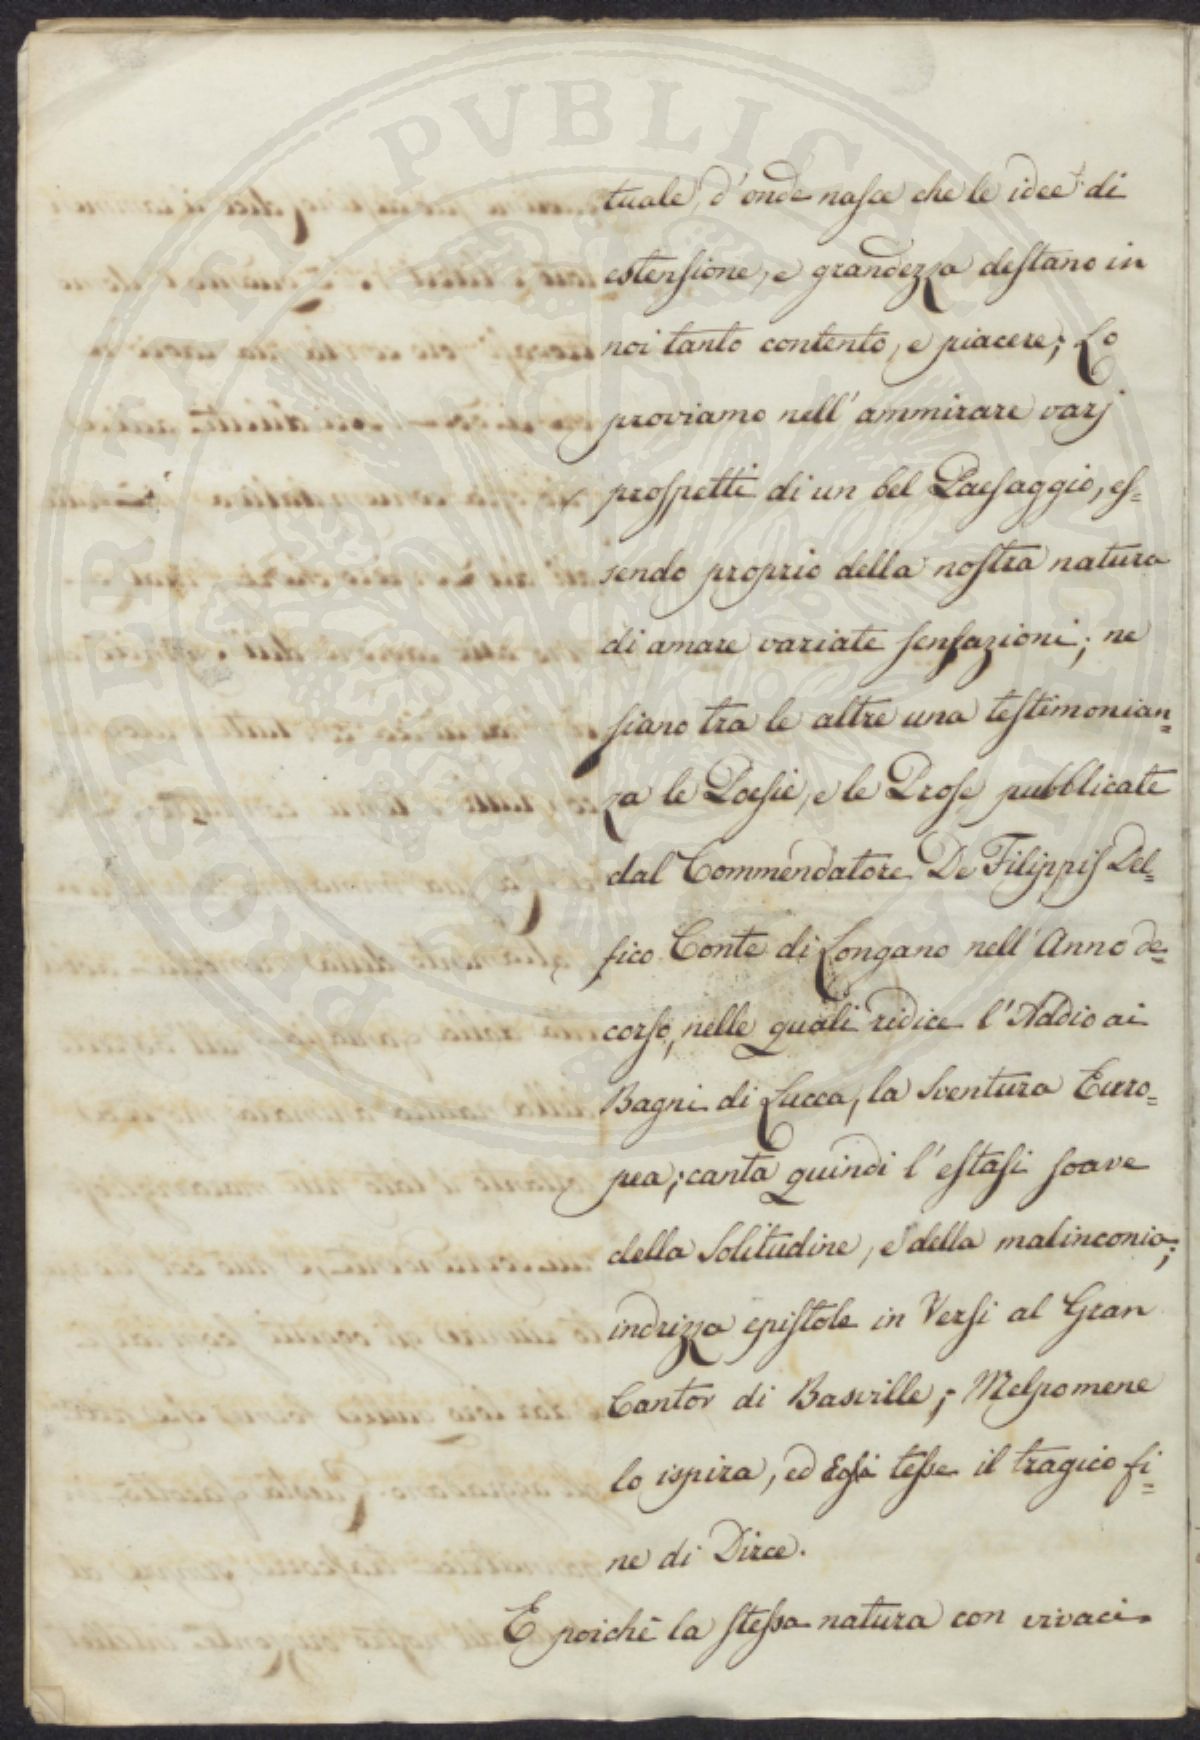 tuale, d'onde nasce che le idee di
estensione, e grandezza destano in
noi tanto contento, e piacere; Lo
proviamo nell'ammirare varj
prospetti di un bel Paesaggio, es=
sendo proprio della nostra natura
di amare variate sensazioni; ne
siano tra le altre una testimonian=
za le Poesie, e le Prose pubblicate
dal Commendatore De Filippis Del=
fico Conte di Longano nell'Anno de=
corso, nelle quali ridice l'Addio ai
Bagni di Lucca, la Sventura Euro=
pea; canta quindi l'estasi soave
della Solitudine, e della malinconia;
indrizza epistole in Versi al Gran
Cantor di Basville; Melpomene
lo ispira, ed Egli tesse il tragico fi=
ne di Dirce.
E poichè la stessa natura con vivaci=